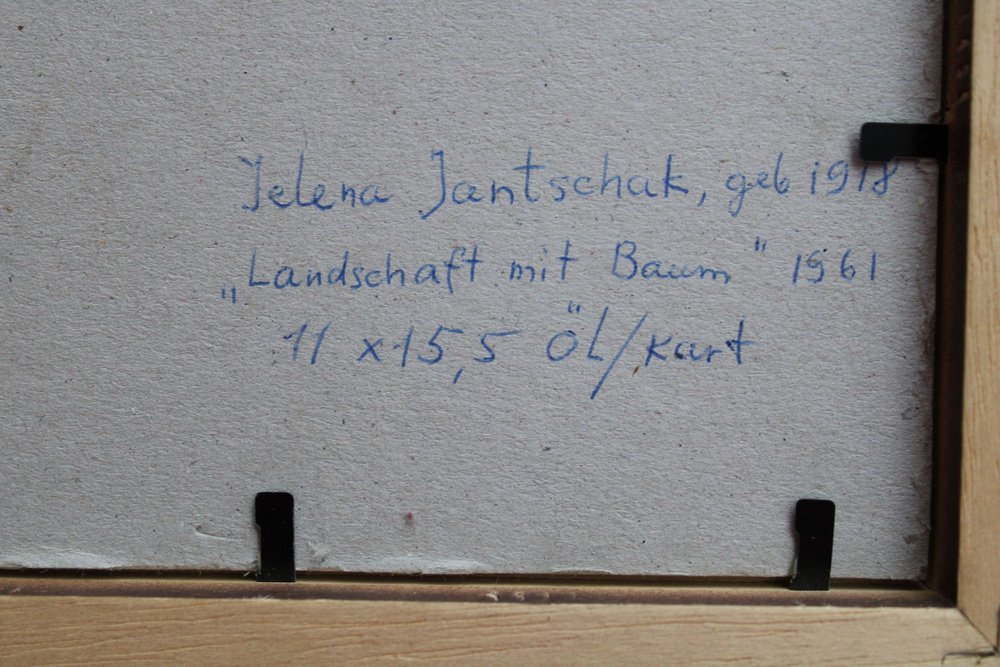 Jelena Jantschak, geb 1918
„Landschaft mit Baum" 1961
11 x 15,5 Öl/Kart